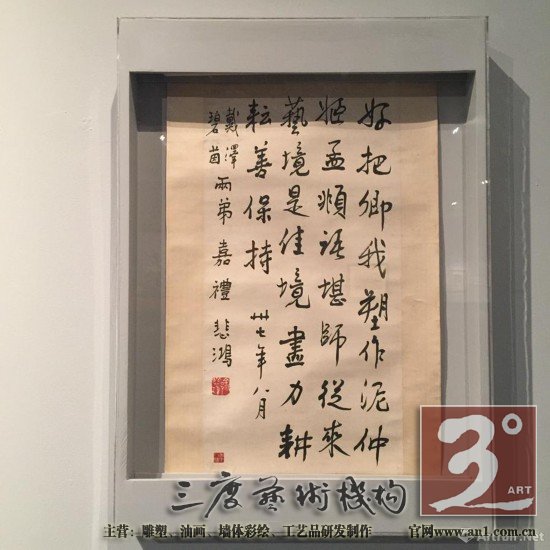 好把卿我塑作泥仲
姬孟頫語堪師從來
藝境是佳境盡力耕
耘善保持 卅七年八月
戴澤
碧茵
兩弟嘉禮 悲鴻
3°
ART
三度藝術機构
主营：雕塑、油画、墙体彩绘、工艺品研发制作 官网www.an1.com.cn
Artron.Net